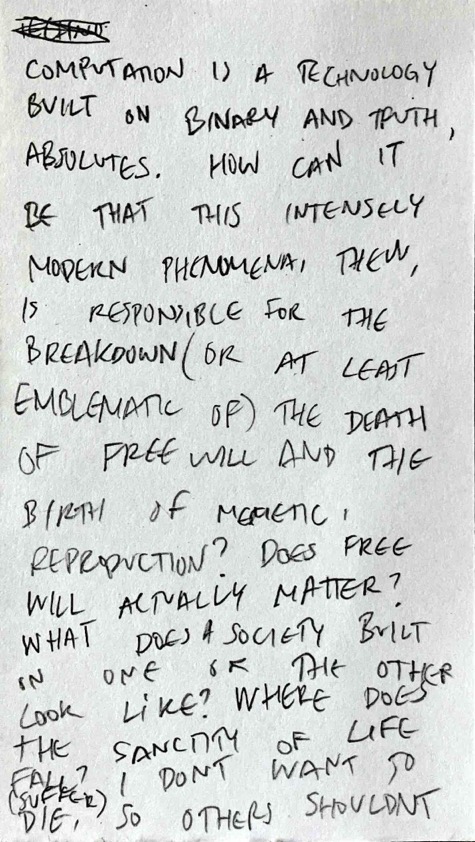 COMPUTATION IS A TECHNOLOGY
BUILT ON BINARY AND TRUTH,
ABSOLUTES. HOW CAN IT
BE THAT THIS INTENSELY
MODERN PHENOMENA, THEN,
IS RESPONSIBLE FOR THE
BREAKDOWN (OR AT LEAST
EMBLEMATIC OF) THE DEATH
OF FREE WILL AND THE
BIRTH OF MEMETIC
REPRODUCTION? DOES FREE
WILL ACTUALLY MATTER?
WHAT DOES A SOCIETY BUILT
IN ONE OR THE OTHER
LOOK LIKE? WHERE DOES
THE SANCTITY OF LIFE
FALL? I DONT WANT TO
(SUFFER)
DIE, SO OTHERS SHOULDNT